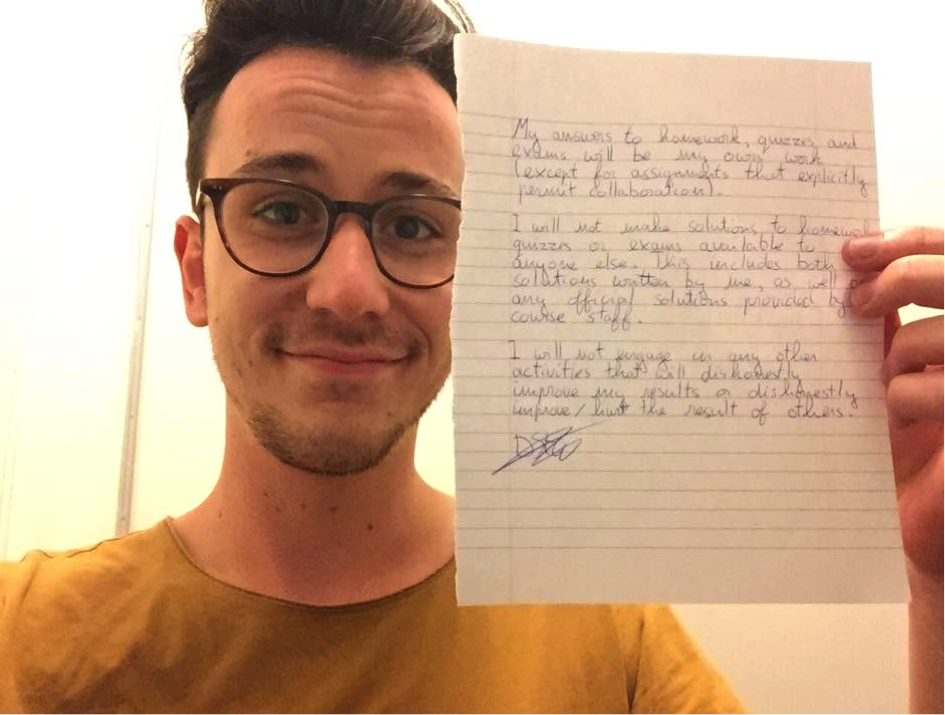 My answers to homework, quizzes, and
exams will be my own work
(except for assignments that explicitly
permit collaboration).
I will not make solutions to homework
quizzes or exams available to
anyone else. This includes both
solutions written by me, as well
any official solutions provided by
course staff.
I will not engage in any other
activities that will dishonestly
improve my results or dishonestly
improve/hurt the result of others.